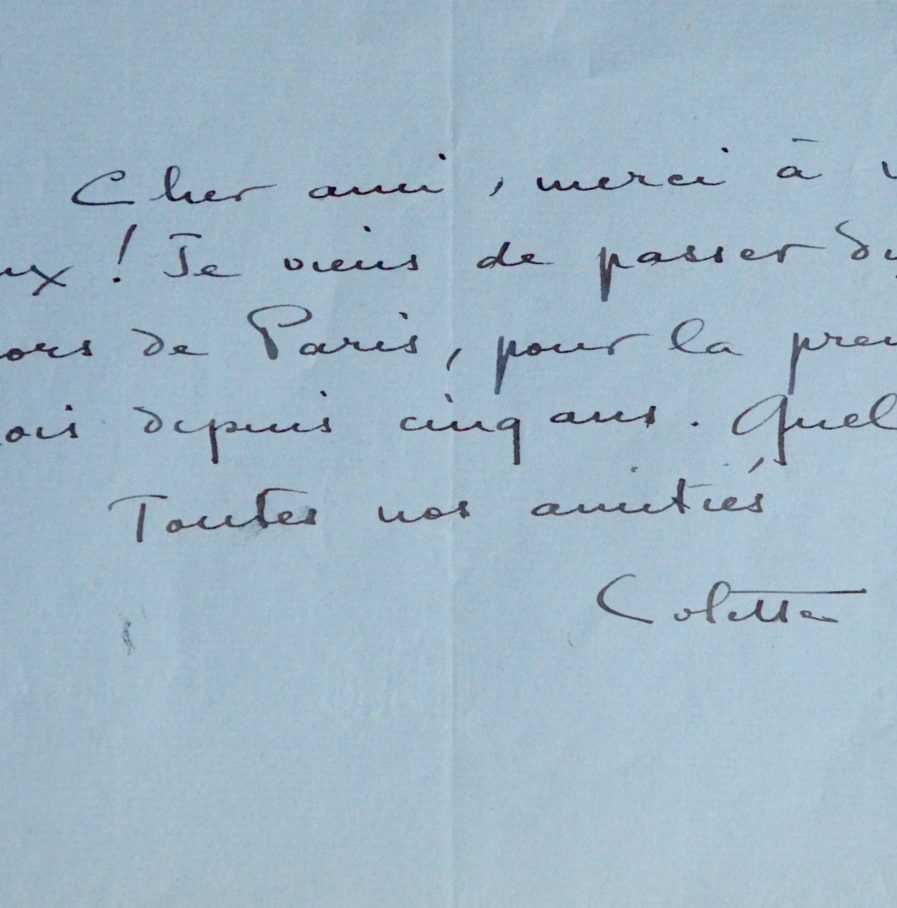 Cher ami, merci à v
ux ! Je viens de passer
ors de Paris, pour la prem
ois depuis cinq ans. Quel
Toutes nos amitiés
Colette